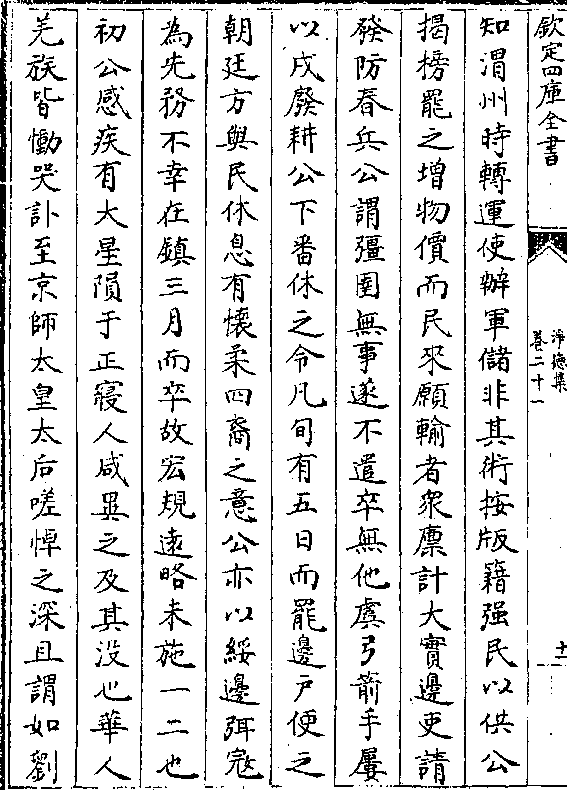 欽定四庫全書
淨德集
卷二十一
十一
知渭州時轉運使辦軍儲非其術按版籍强民以供公
揭榜罷之增物價而民來願輸者衆廩計大實邊吏請
發防春兵公謂彊圉無事遂不遣卒無他虞弓箭手屢
以戍廢耕公下番休之令凡旬有五日而罷邊户便之
朝廷方與民休息有懷柔四裔之意公亦以綏邊弭冦
為先務不幸在鎮三月而卒故宏規逺略未施一二也
初公感疾有大星隕于正寢人咸異之及其没也華人
羌族皆慟哭訃至京師太皇太后嗟悼之深且謂如劉